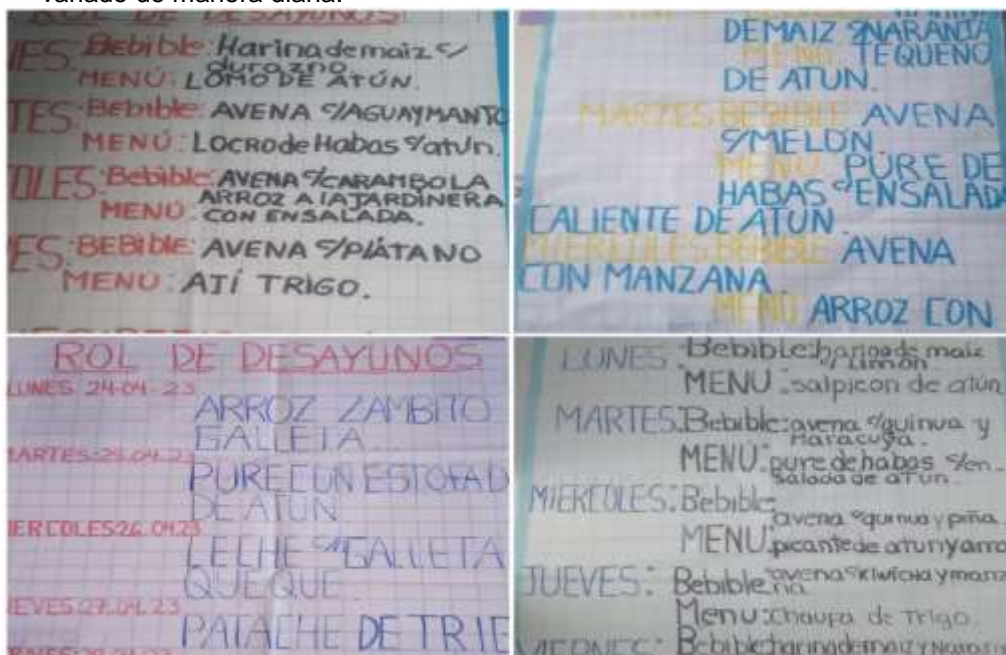 variado de manera diaria.
ROL DE DESAYUNOS
ES: Bebible: Harina de maiz c/
durazno
MENÚ: LOMO DE ATÚN.
TES: Bebible: AVENA C/AGUAYMANTO
MENÚ: Locro de Habas c/atún.
OLES: Bebible: AVENA C/CARAMBOLA
ARROZ A LA JARDINERA
MENÚ: CON ENSALADA.
ES: BEBible: AVENA C/PLÁTANO
MENÚ: AJÍ TRIGO.
DE MAIZ C/NARANJA
MENÚ TEQUEÑO
DE ATUN.
MARTES BEBIBLE AVENA
C/MELÓN.
MENU PURE DE
HABAS C/ENSALAD
CALIENTE DE ATUN.
MIERCOLES BEBIBLE AVENA
CON MANZANA.
MENU ARROZ CON
ROL DE DESAYUNOS
LUNES 24-04-23
ARROZ ZAMBITO
GALLETA
MARTES:25.04.23
PURE CON ESTOFAD
DE ATUN
IERCOLES 26.04.23
LECHE C/GALLETA
QUEQUE.
JEVES 27.04.23
PATACHE DE TRIG
LUNES: Bebible: harina de maiz
c/ Limón
MENÚ: salpicon de atún
MARTES: Bebible: avena c/quinua y
Maracuya.
MENÚ: pure de habas c/en
salada de atun.
MIERCOLES: Bebible:
avena c/quinua y piña
MENÚ: picante de atun y arro
JUEVES: Bebible: avena c/Kiwicha y manz
na
Menu: chaufa de Trigo.
VIERNES: Bebible: harina de maiz y Naran